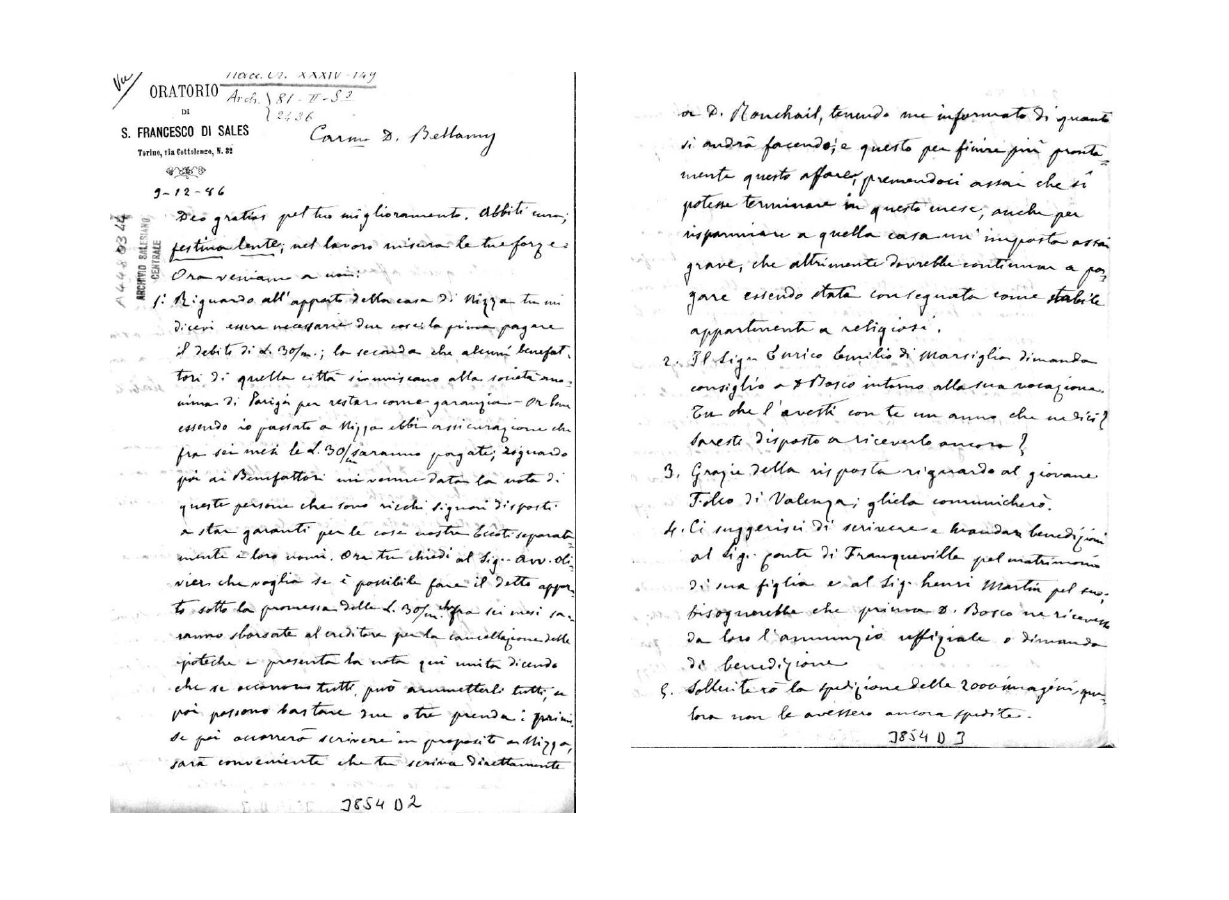 Vu
Racc. Or. XXXIV-149
ORATORIO
Arch. 81-II-S.3
2436
DI
S. FRANCESCO DI SALES
Torino, via Cottolengo, N. 32
Carmo D. Bellamy
9-12-86
A4480344
ARCHIVIO SALESIANO
CENTRALE
Deo gratias pel tuo miglioramento. Abbiti cura,
festina lente; nel lavoro misura le tue forze.
Ora veniamo a noi:
1. Riguardo all'apporto della casa di Nizza tu mi
dicevi essere necessarie due cose: la prima pagare
il debito di L. 30/m.; la seconda che alcuni benefat-
tori di quella città si uniscano alla società ano-
nima di Parigi per restar come garanzia - Or bene
essendo io passato a Nizza ebbi assicurazione che
fra sei mesi le L. 30/m saranno pagate; riguardo
poi ai Benefattori mi venne data la nota di
queste persone che sono ricchi signori disposti
a star garanti per le cose nostre. Eccoti separata-
mente i loro nomi. Ora tu chiedi al Sig. Avv. Oli-
vier che voglia se è possibile fare il detto appor-
to sotto la promessa delle L. 30/m. che fra sei mesi sa-
ranno sborsate al creditore per la cancellazione delle
ipoteche e presenta la nota qui unita dicendo
che se occorrono tutti, può ammetterli tutti, se
poi possono bastare due o tre prenda i primi,
se poi occorrerà scrivere in proposito a Nizza,
sarà conveniente che tu scriva direttamente
3854 D 2
a D. Ronchail, tenendo me informato di quanto
si andrà facendo; e questo per finire più pronta-
mente questo affare, premendoci assai che si
potesse terminare in questo mese, anche per
risparmiare a quella casa un'imposta assai
grave, che altrimenti dovrebbe continuar a pa-
gare essendo stata consegnata come stabile
appartenente a religiosi.
2. Il Sig. Enrico Emilio di Marsiglia dimanda
consiglio a D Bosco intorno alla sua vocazione.
Tu che l'avesti con te un anno che ne dici?
Saresti disposto a riceverlo ancora?
3. Grazie della risposta riguardo al giovane
Folco di Valenza; gliela comunicherò.
4. Ci suggerisci di scrivere e mandar benedizioni
al Sig. conte di Franqueville pel matrimonio
di sua figlia e al Sig. Henri Martin pel suo;
bisognerebbe che prima D. Bosco ne ricevesse
da loro l'annunzio uffiziale o dimanda
di benedizione
5. Solleciterò la spedizione delle 2000 imagini, qua-
lora non le avessero ancora spedite.
3854 D 3